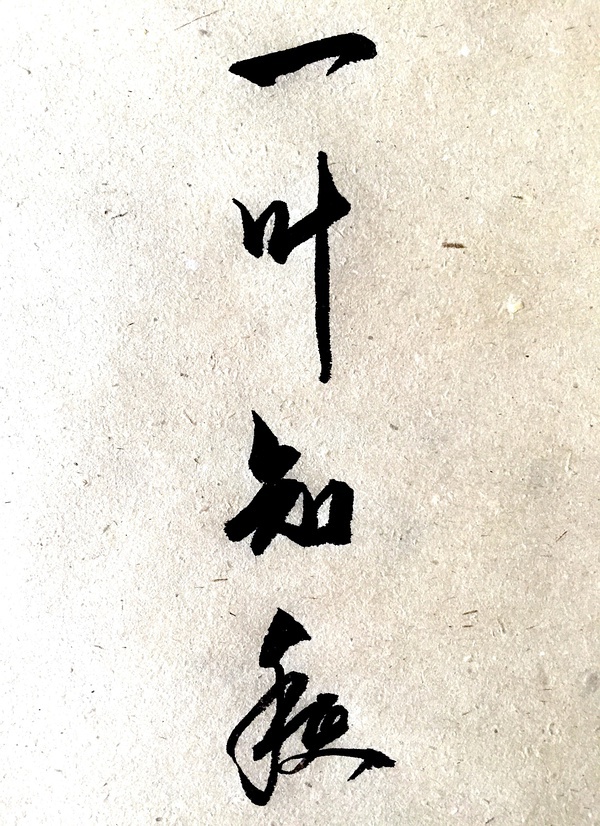 一叶知秋